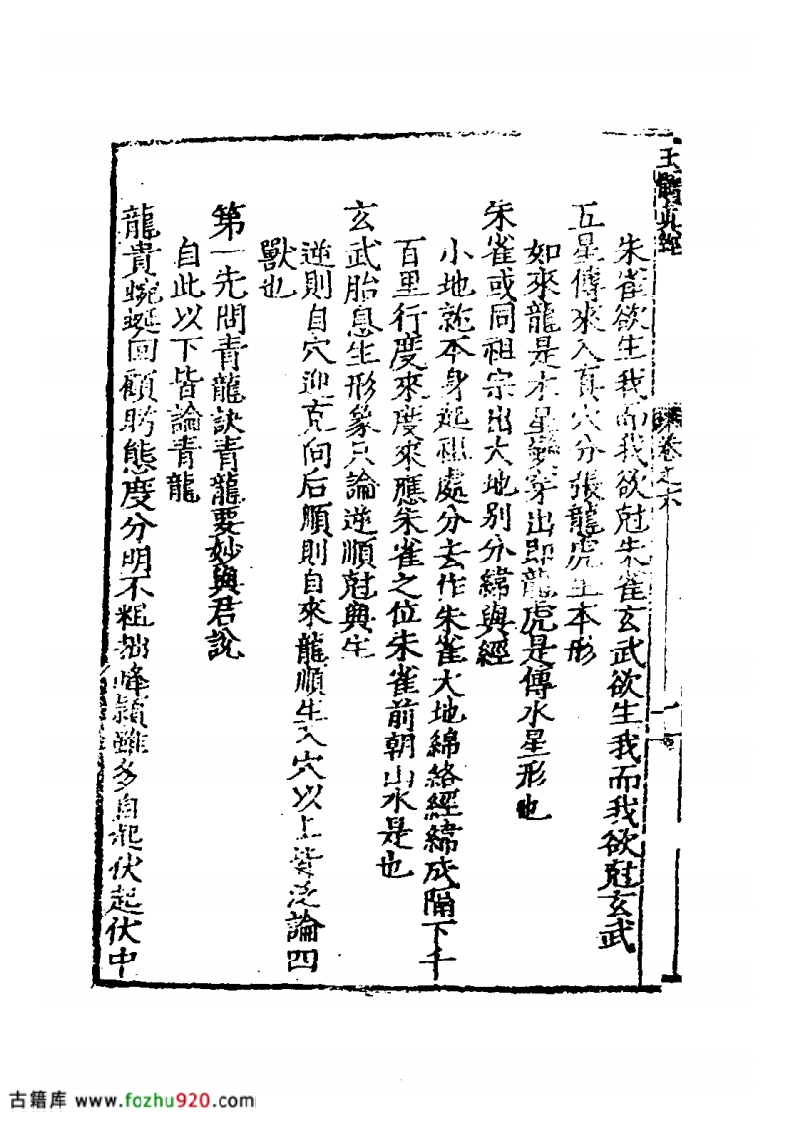 玉髓真經
卷之六
朱雀欲生我而我欲尅朱雀玄武欲生我而我欲尅玄武
五星傳來入真穴分張龍虎生本形
如來龍是水星穿出即龍虎是傳水星形也
朱雀或同祖宗出大地別分緯與經
小地就本身起祖處分去作朱雀大地綿絡經緯成隔下千
百里行度來度來應朱雀之位朱雀前朝山水是也
玄武胎息生形象只論逆順尅與生
逆則自穴迎克向后順則自來龍順生入穴以上皆泛論四
獸也
第一先問青龍訣青龍要妙與君說
自此以下皆論青龍
龍貴蜿蜒回顧盻態度分明不粗拙峰巒雖多自起伏起伏中
古籍库 www.fozhu920.com